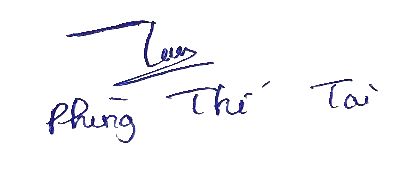 Phùng Thế Tài